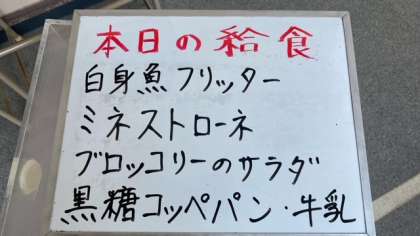 本日の給食
白身魚フリッター
ミネストローネ
ブロッコリーのサラダ
黒糖コッペパン・牛乳